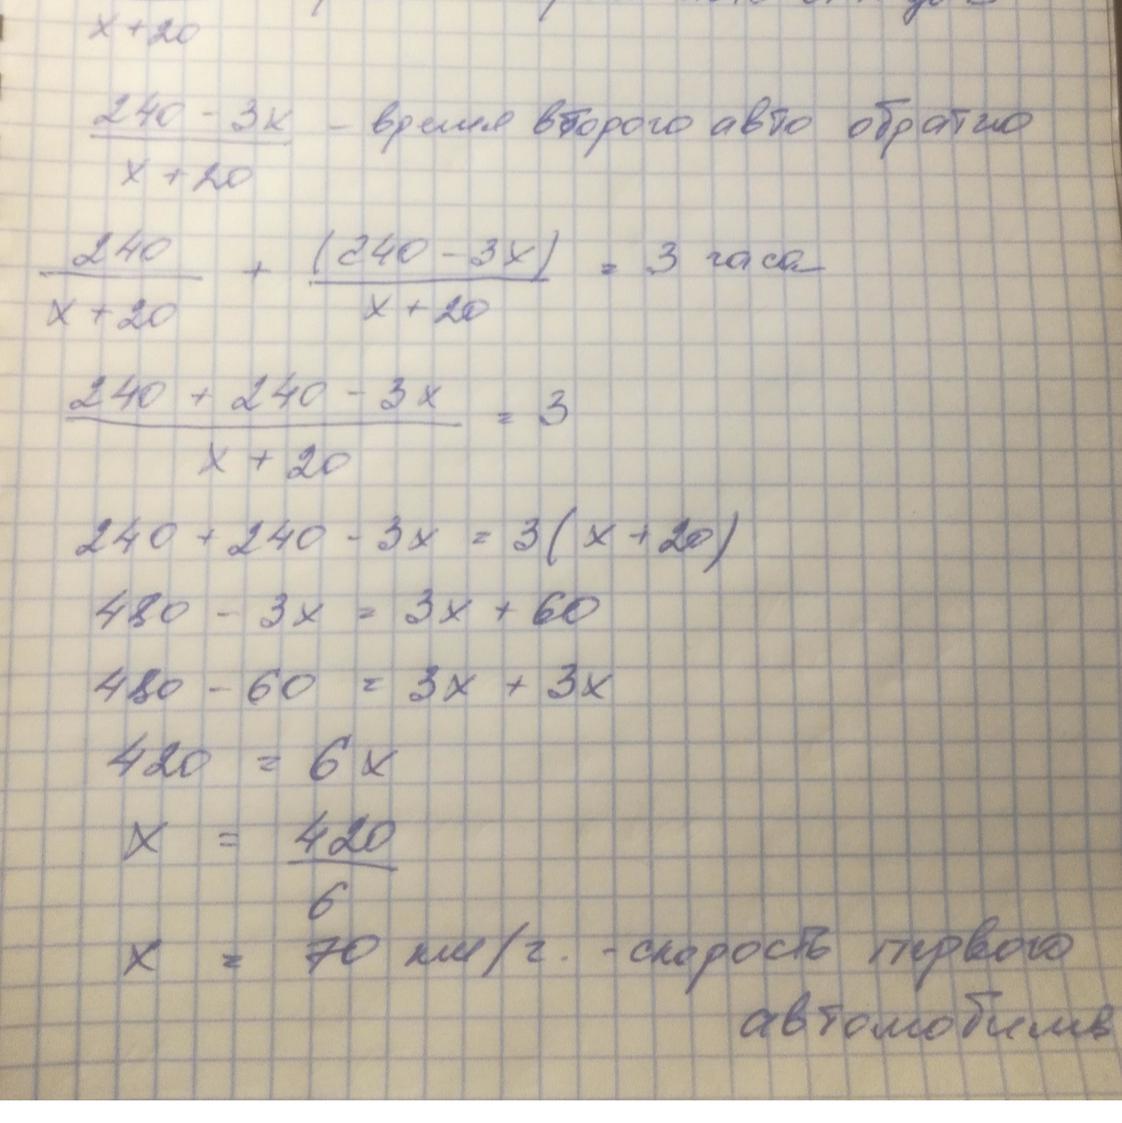 x + 20
240 - 3x / x + 20 - время второго авто обратно
240 / x + 20 + (240 - 3x) / x + 20 = 3 часа
240 + 240 - 3x / x + 20 = 3
240 + 240 - 3x = 3(x + 20)
480 - 3x = 3x + 60
480 - 60 = 3x + 3x
420 = 6x
x = 420 / 6
x = 70 км/г. - скорость первого
автомобиля